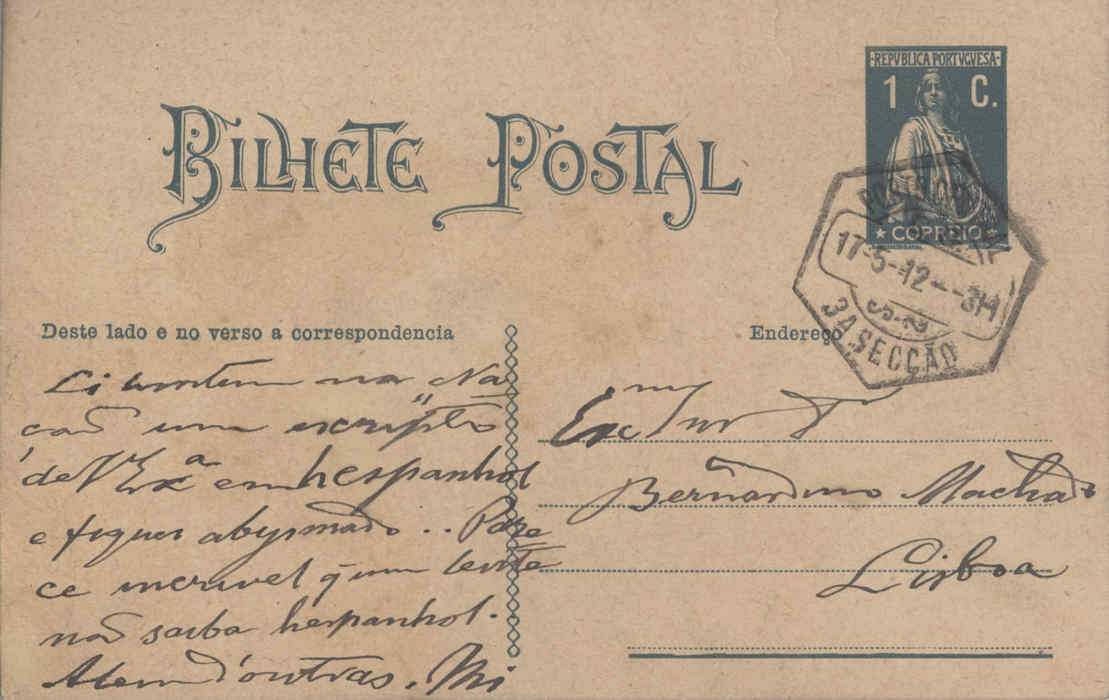 REPVBLICA PORTVGVESA
1 C.
BILHETE POSTAL
CORREIO
17-5-12--3H
3A SECÇÃO
Deste lado e no verso a correspondencia
Endereço
Li hontem na Na
cão um escripto
de V. Exa em hespanhol
e fiquei abysmado.. Pare
ce incrivel q um lente
não saiba hespanhol.
Alem d'outras,
Exmo Snr Dr
Bernardino Machado
Lisboa